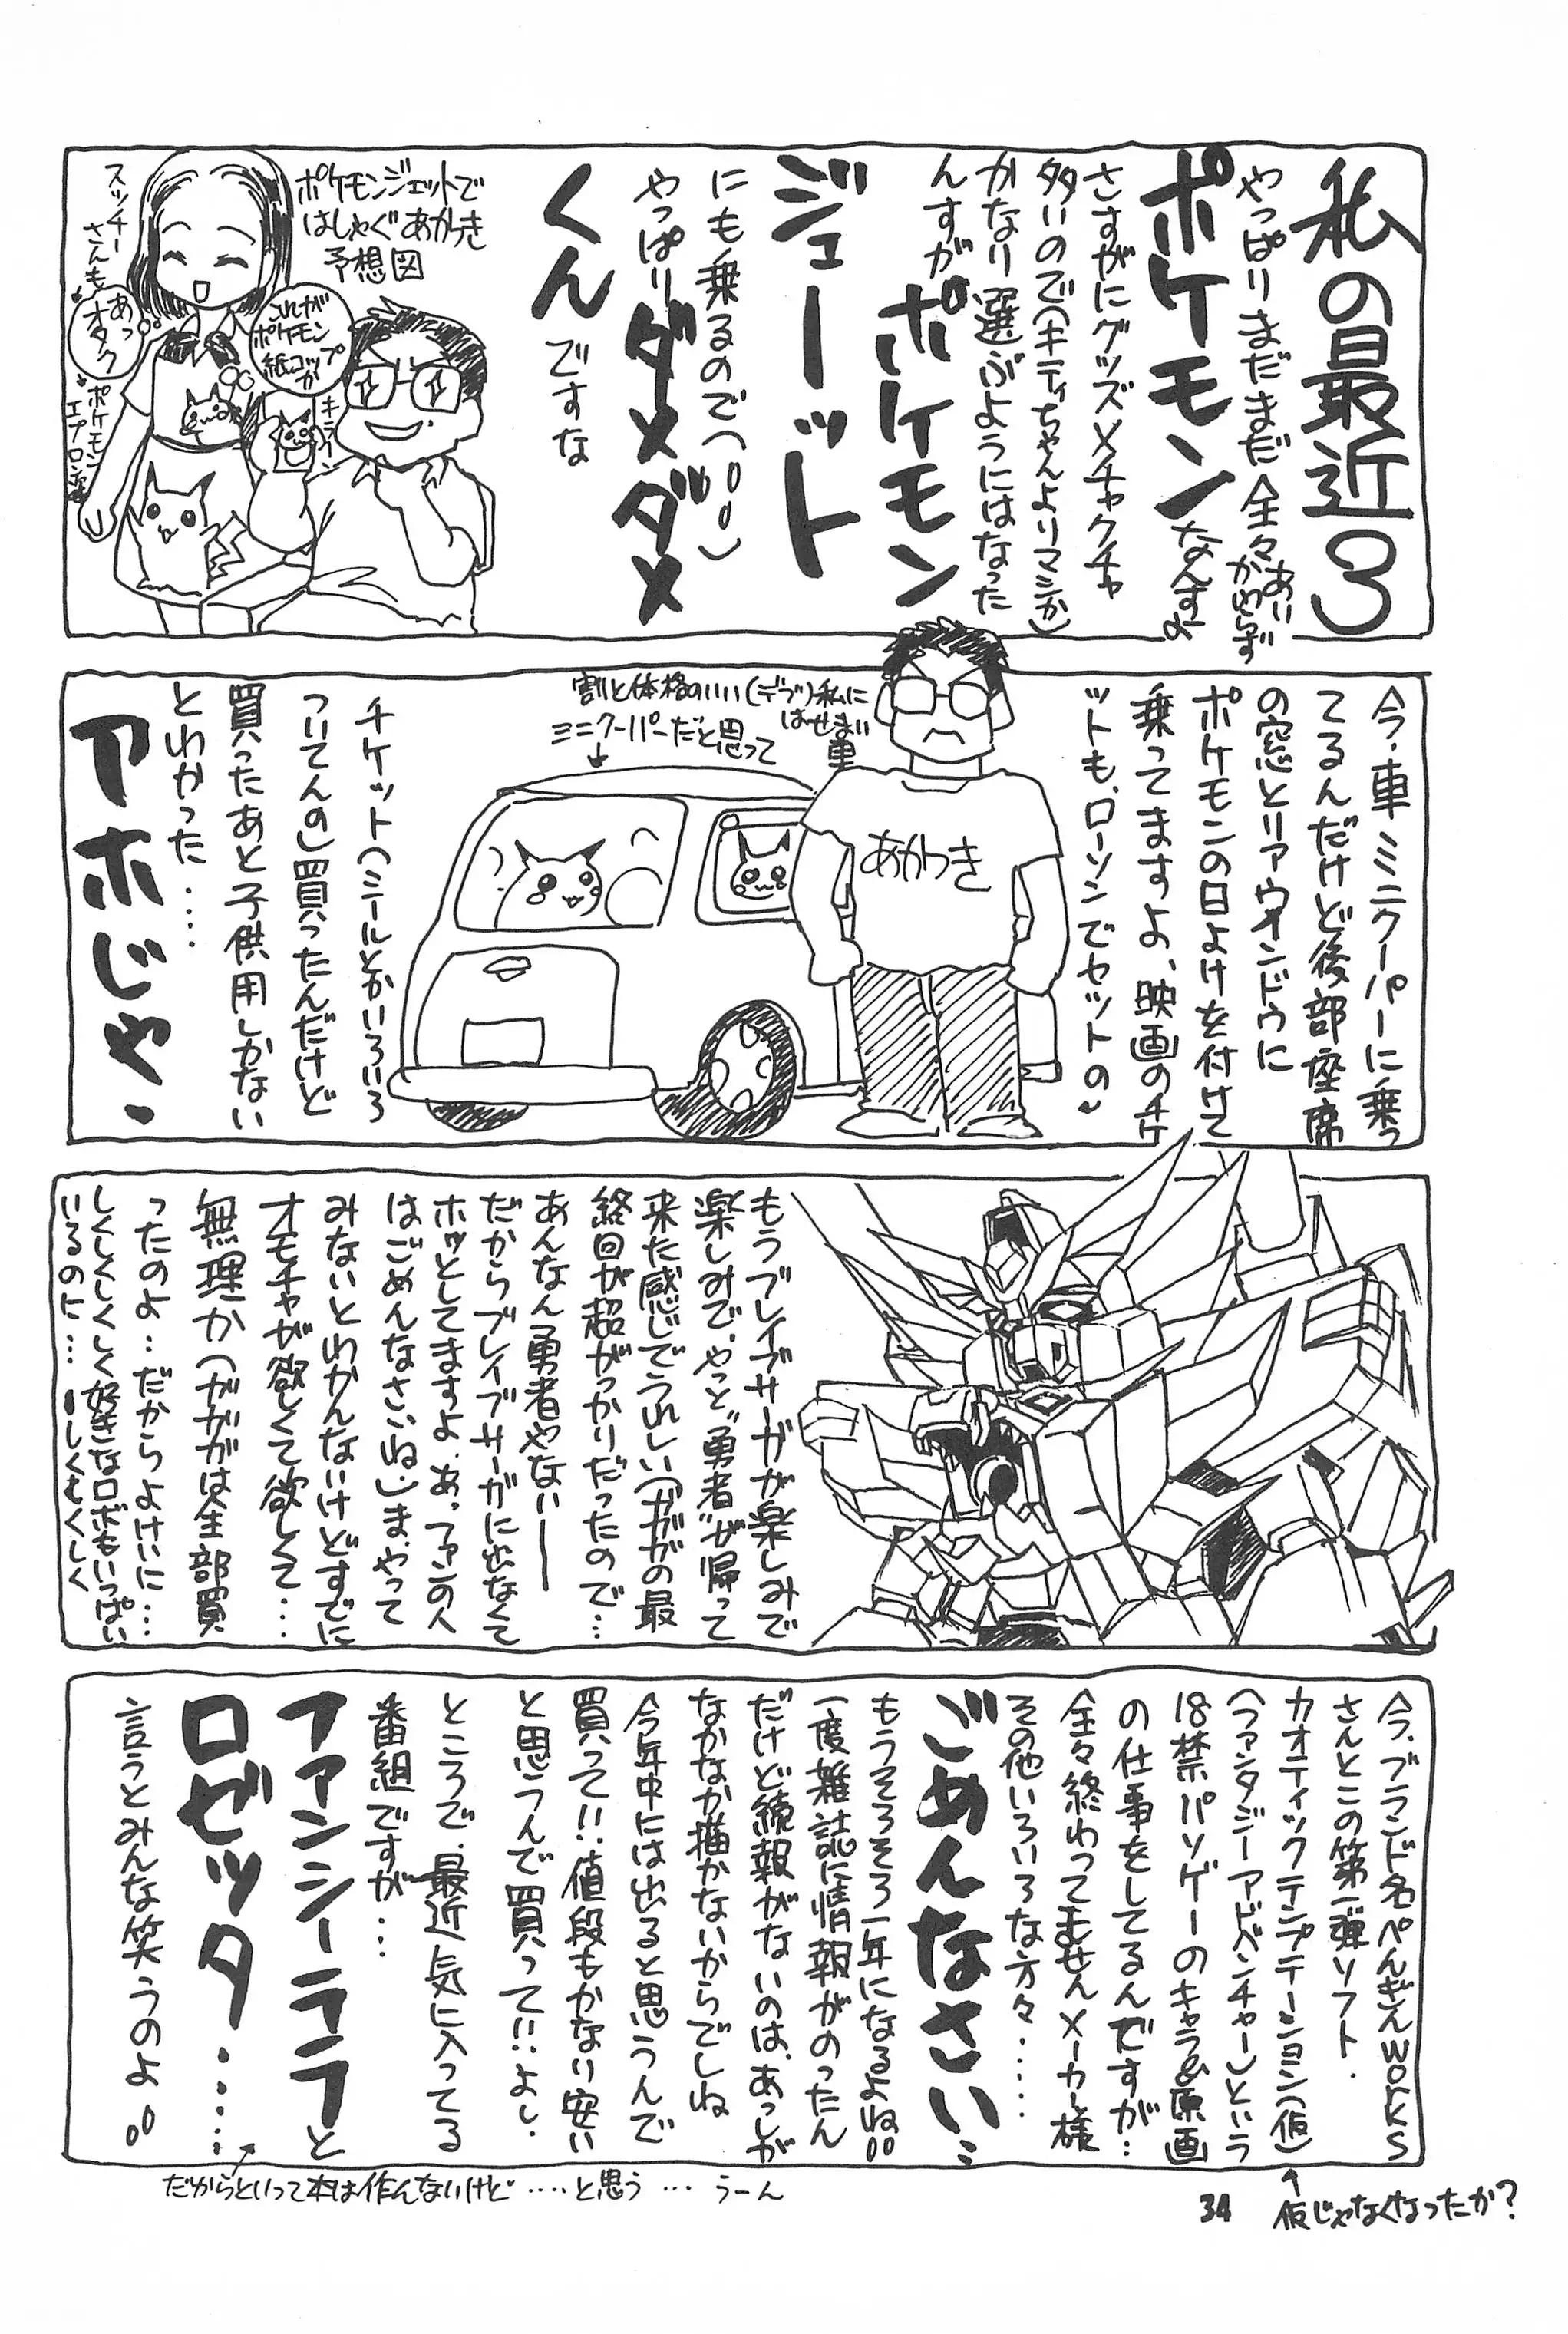 私の最近3
やっぱりまだまだ全々あいかわらず
ポケモンなんすよ
さすがにグッズメチャクチャ
多いので(キティちゃんよりマシか)
かなり選ぶようにはなった
んすがポケモン
ジェーット
にも乗るので(〃)
やっぱりダメダメ
くんですな
ポケモンジェットで
はしゃぐあかつき
予想図
これが
ポケモン
紙コップ
か
キラーン
スッチー
さんも
あっ
オタク
ポケモン
エプロン姿
今、車ミニクーパーに乗っ
てるんだけど後部座席
の窓とリアウインドウに
ポケモンの日よけを付けて
乗ってますよ、映画のチケ
ットも、ローソンでセットの〜
割と体格のいい(デブ)私に
はせまい
車
ミニクーパーだと思って
あかつき
チケット(シールとかいろいろ
ついてんの)買ったんだけど
買ったあと子供用しかない
とわかった‥‥
アホじゃ・
もうブレイブサーガが楽しみで
楽しみで、やっと"勇者"が帰って
来た感じでうれしい(ガガガの最
終回が超がっかりだったので…
あんなん勇者やないー
だからブレイブサーガに出なくて
ホッとしてますよ、あっファンの人
はごめんなさいね)ま、やって
みないとわかんないけどすでに
オモチャが欲しくて欲しくて…
無理か(ガガガは全部買
ったのよ…だからよけいに…
しくしくしくしく好きなロボもいっぱい
いるのに…しくしくしく
今、ブランド名ぺんぎんworks
さんとこの第二弾ソフト.
カオティックテンプテーション(仮)
(ファンタジーアドベンチャー)という
18禁パソゲーのキャラ&原画
の仕事をしてるんですが…
全々終わってません メーカー様
その他いろいろな方々‥‥
ごめんなさい…
もうそろそろ一年になるよね〃
一度雑誌に情報がのったん
だけど続報がないのは、あっしが
なかなか描かないからでしね
今年中には出ると思うんで
買って!!値段もかなり安い
と思うんで買って!!よし.
ところで、最近気に入ってる
番組ですが…
ファンシーララと
ロゼッタ‥‥
言うとみんな笑うのよ〃
だからといって本は作んないけど‥‥と思う…うーん
34
仮じゃなくなったか?